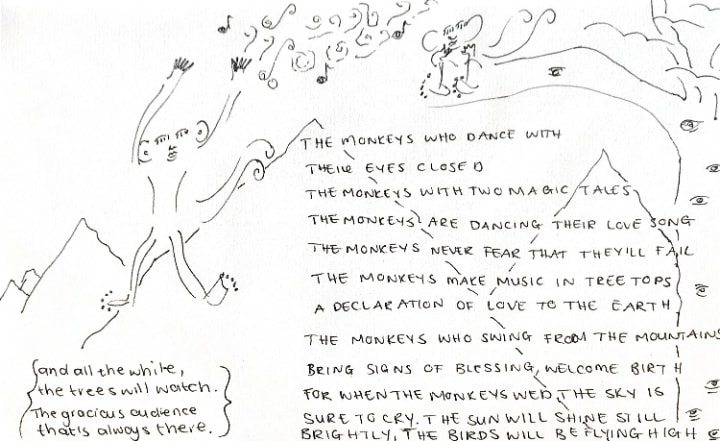 THE MONKEYS WHO DANCE WITH
THEIR EYES CLOSED
THE MONKEYS WITH TWO MAGIC TALES
THE MONKEYS ARE DANCING THEIR LOVE SONG
THE MONKEYS NEVER FEAR THAT THEY'LL FALL
THE MONKEYS MAKE MUSIC IN TREE TOPS
A DECLARATION OF LOVE TO THE EARTH
THE MONKEYS WHO SWING FROM THE MOUNTAINS
BRING SIGNS OF BLESSING, WELCOME BIRTH
FOR WHEN THE MONKEYS WED, THE SKY IS
SURE TO CRY. THE SUN WILL SHINE STILL
BRIGHTLY, THE BIRDS WILL BE FLYING HIGH
and all the while,
the trees will watch.
The gracious audience
that's always there.